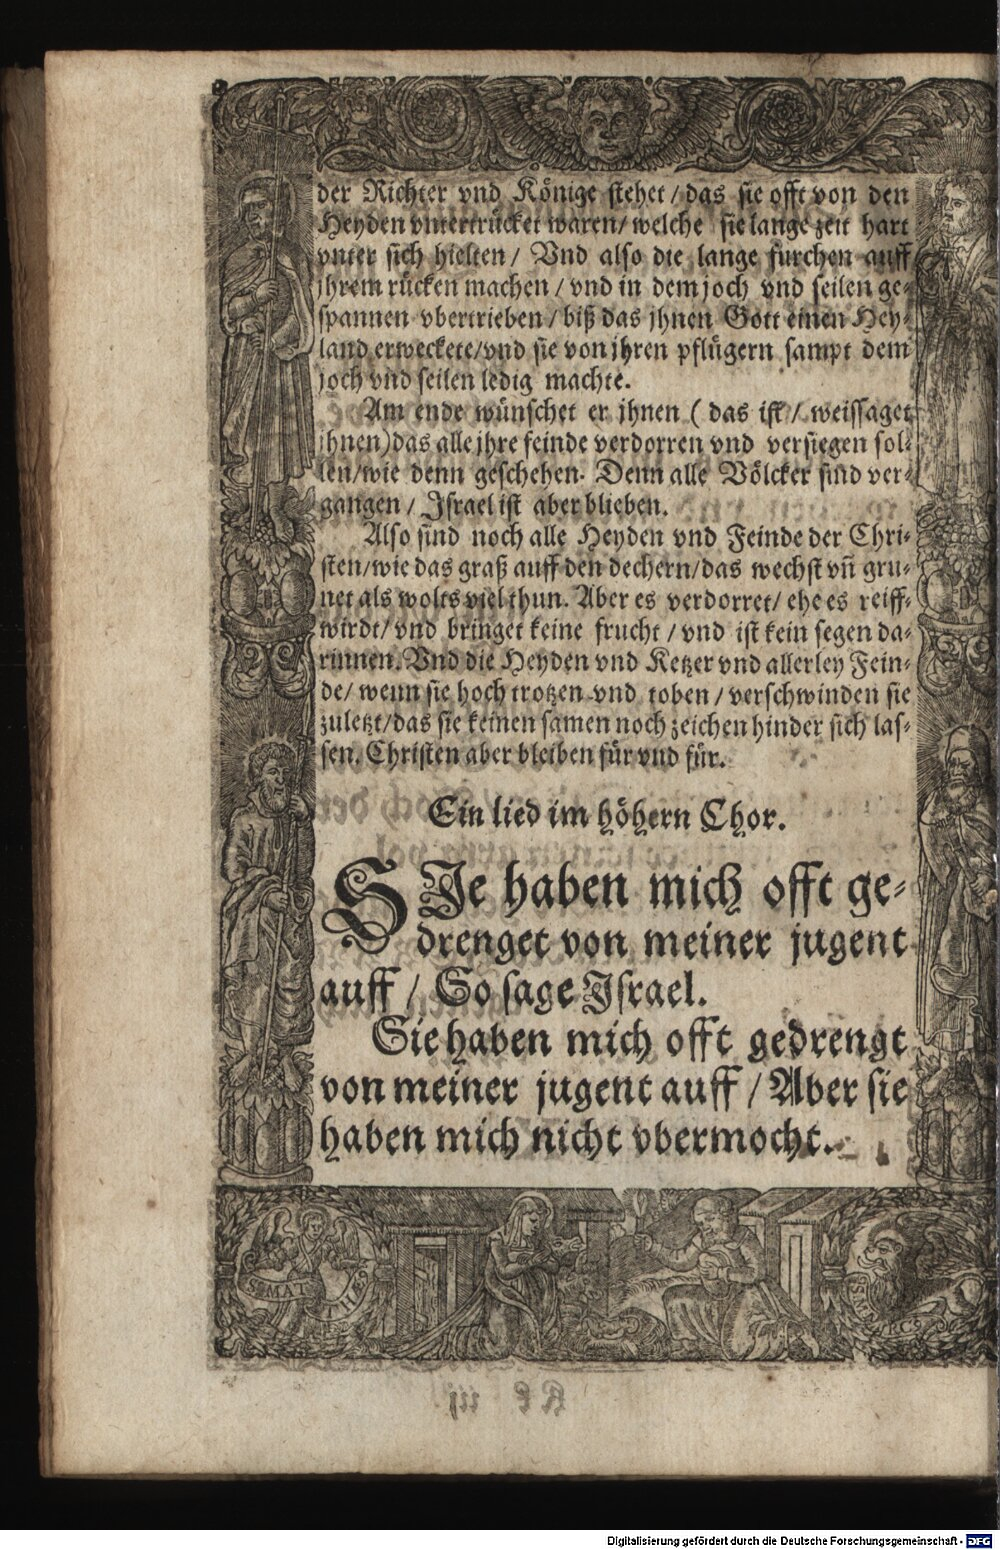 der Richter vnd Könige stehet / das sie offt von den
Heyden vntertrücket waren / welche sie lange zeit hart
vnter sich hielten / Vnd also die lange furchen auff
jhrem rücken machen / vnd in dem joch vnd seilen ge-
spannen vbertrieben / biß das jhnen Gott einen Hey-
land erweckete / vnd sie von jhren pflügern sampt dem
joch vnd seilen ledig machte.
Am ende wünschet er jhnen ( das ist / weissaget
jhnen) das alle jhre feinde verdorren vnd versiegen sol-
len / wie denn geschehen. Denn alle Völcker sind ver-
gangen / Israel ist aber blieben.
Also sind noch alle Heyden vnd Feinde der Chri-
sten / wie das graß auff den dechern / das wechst vn̄ gru-
net als wolts viel thun. Aber es verdorret / ehe es reiff-
wirdt / vnd bringet keine frucht / vnd ist kein segen da-
rinnen. Vnd die Heyden vnd Ketzer vnd allerley Fein-
de / wenn sie hoch trotzen vnd toben / verschwinden sie
zuletzt / das sie keinen samen noch zeichen hinder sich las-
sen. Christen aber bleiben für vnd für.
Ein lied im höhern Chor.
SJe haben mich offt ge-
drenget von meiner jugent
auff / So sage Jsrael.
Sie haben mich offt gedrengt
von meiner jugent auff / Aber sie
haben mich nicht vbermocht.
S MAT THES
S MARCS
Digitalisierung gefördert durch die Deutsche Forschungsgemeinschaft - DFG